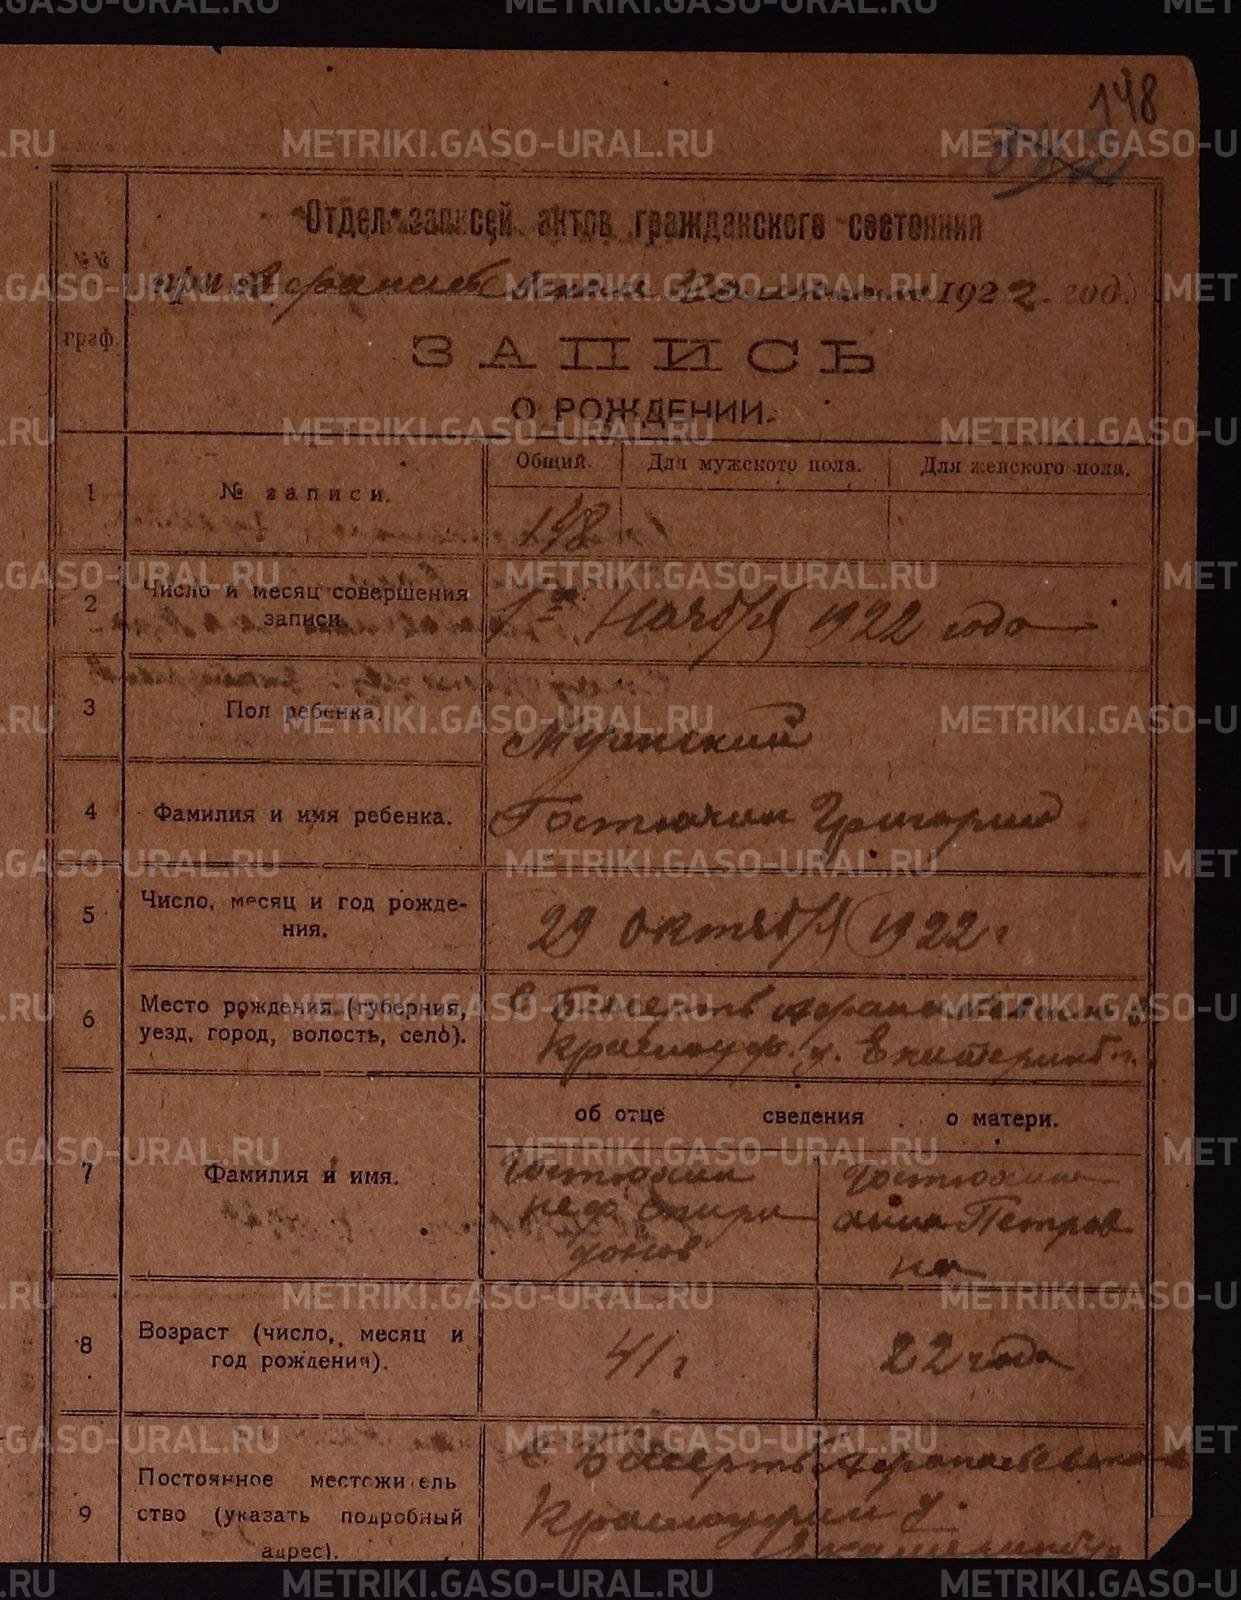 METRIKI.GASO-URAL.RU
148
№№ граф.
Отдел записей актов гражданского состояния
при 1922 год.
ЗАПИСЬ
О РОЖДЕНИИ.
Общий. Для мужского пола. Для женского пола.
1 № записи. 148
2 Число и месяц совершения записи. 1го Ноября 1922 года
3 Пол ребенка. Мужский
4 Фамилия и имя ребенка. Гостюхин Григорий
5 Число, месяц и год рожде-
ния. 29 октября 1922 г
6 Место рождения (губерния, с Бисертв
уезд, город, волость, село). Красноуф. у. Екатеринб г.
об отце сведения о матери.
7 Фамилия и имя. Гостюхин Гостюхина
Неф Спири Анна Петров
донов на
8 Возраст (число, месяц и
год рождения). 41 г 22 года
9 Постоянное местожитель
ство (указать подробный
адрес). с Бисертв
Красноуфим у.